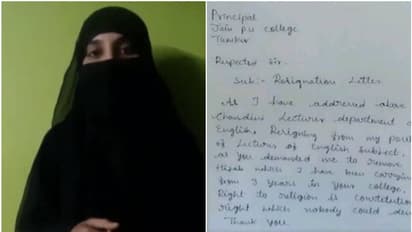 Principal
Jain P.U college
Tumkur
Respected sir.
Sub:- Resignation Letter
As I have addressed above
Chandini Lecturer department o
English, Resigning from my post
of Lecturer of English Subject,
as you demanded me to remove
Hijab which I have been carrying
from 3 years in your college,
Right to religion is constitution
right which nobody could de
Thank you